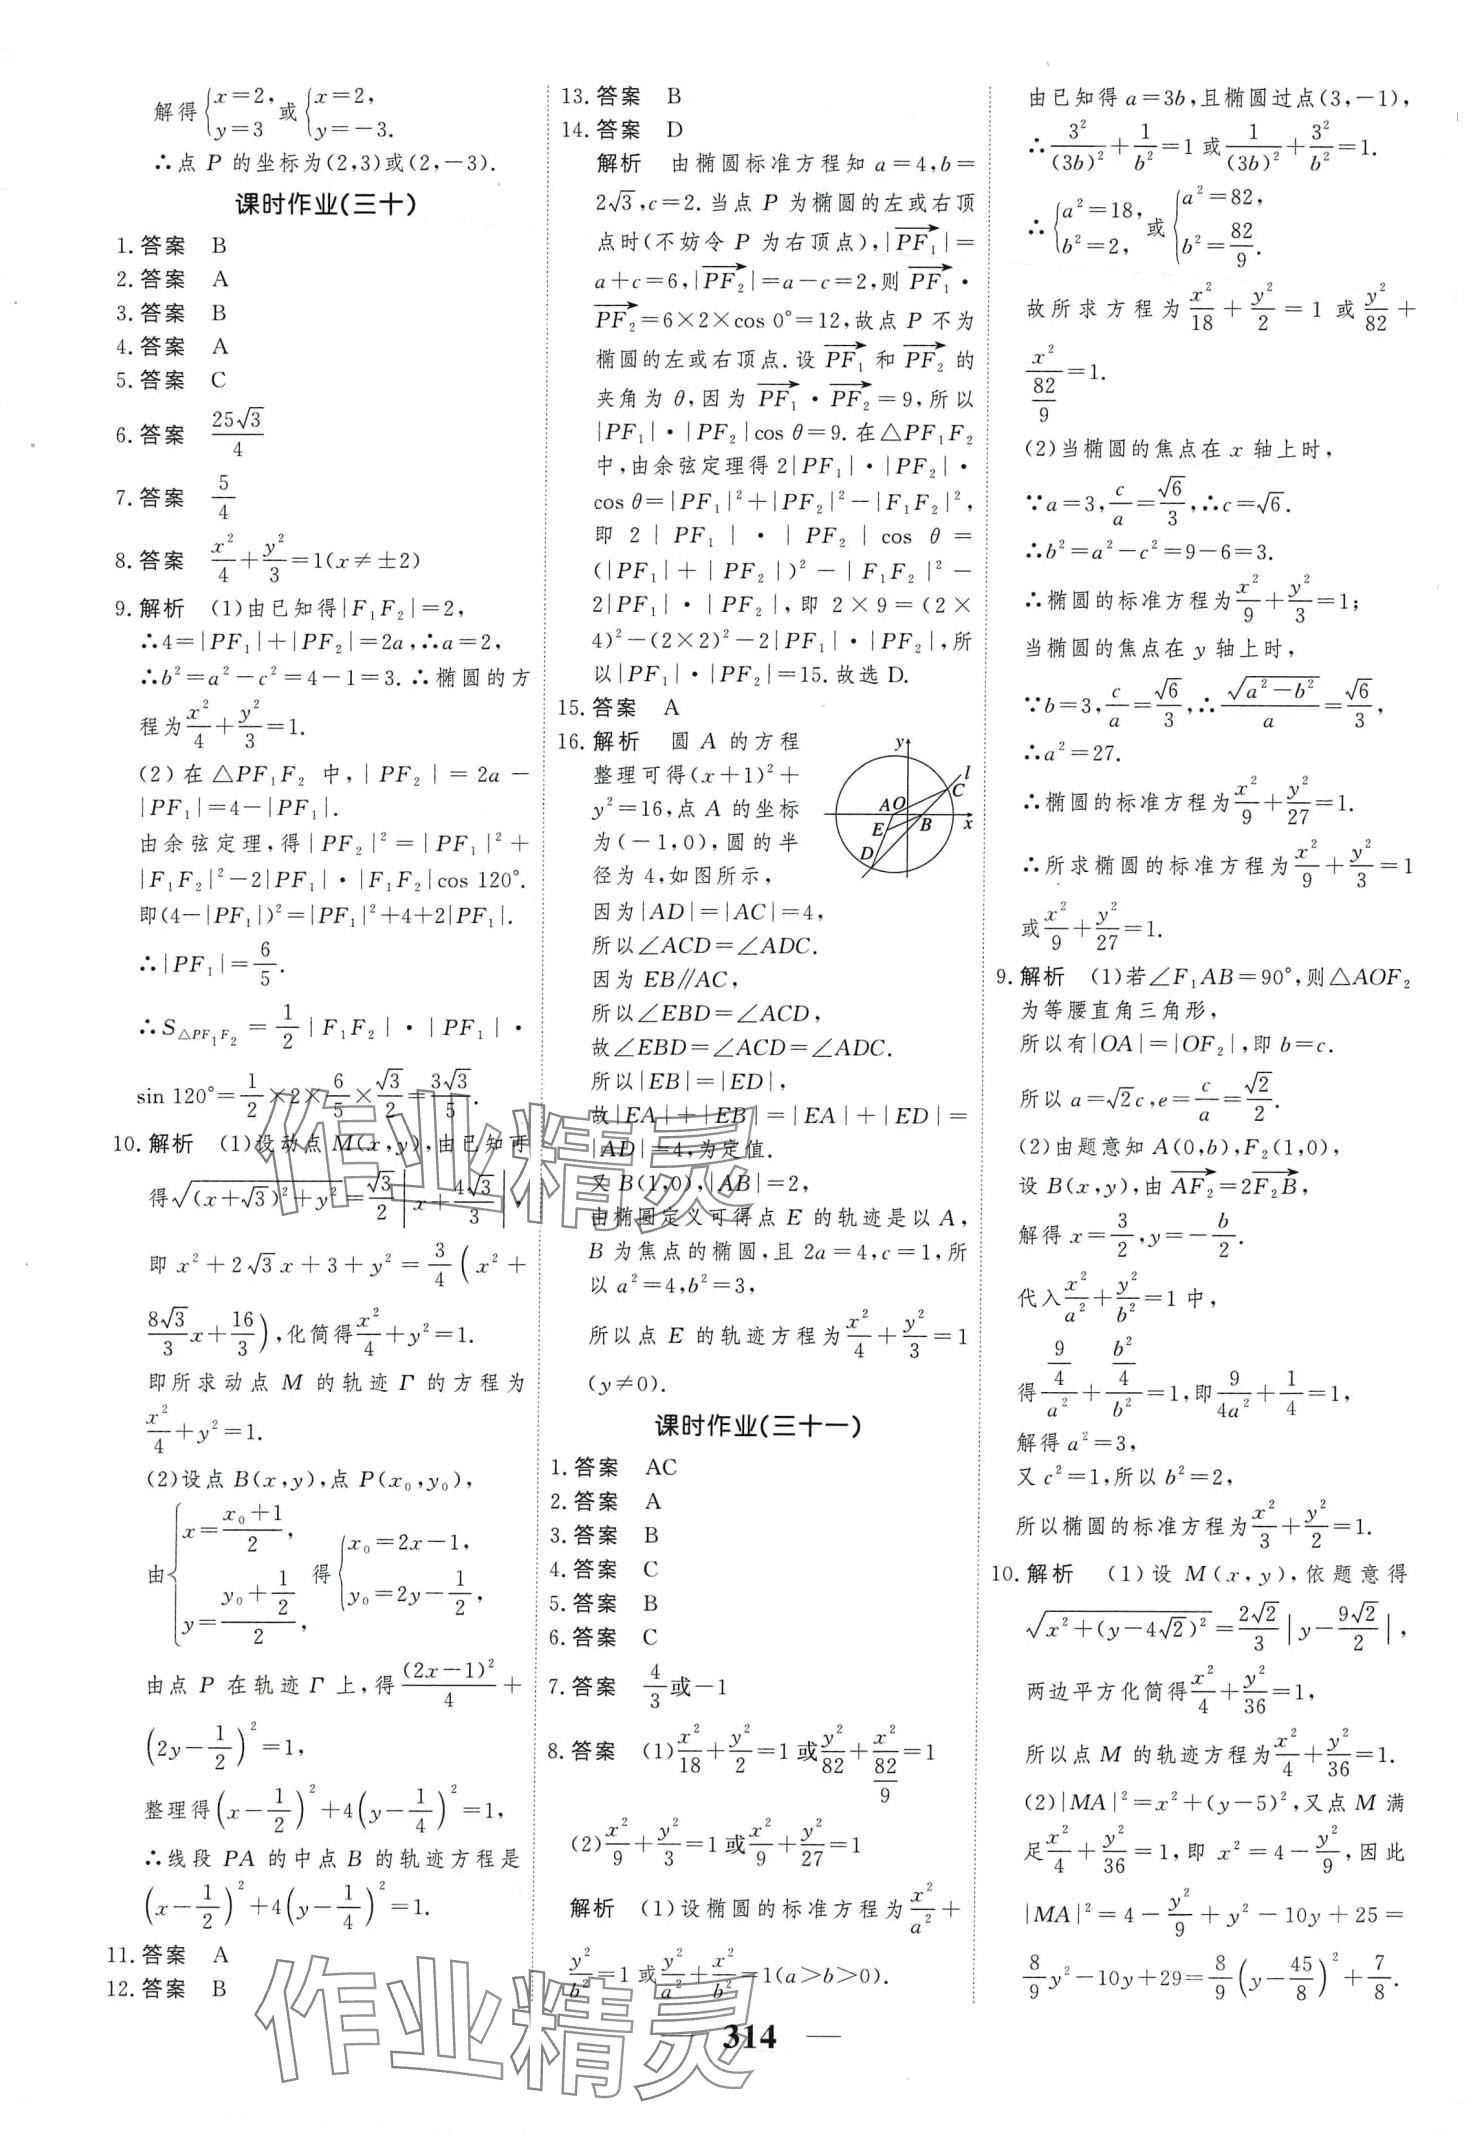 解得{x=2, y=3 或{x=2, y=-3.
∴点 P 的坐标为(2,3)或(2,-3).
课时作业(三十)
1. 答案 B
2. 答案 A
3. 答案 B
4. 答案 A
5. 答案 C
6. 答案 25√3/4
7. 答案 5/4
8. 答案 x²/4+y²/3=1(x≠±2)
9. 解析 (1)由已知得|F₁F₂|=2,
∴4=|PF₁|+|PF₂|=2a,∴a=2,
∴b²=a²-c²=4-1=3.∴椭圆的方
程为x²/4+y²/3=1.
(2)在△PF₁F₂ 中,|PF₂|=2a-
|PF₁|=4-|PF₁|.
由余弦定理,得|PF₂|²=|PF₁|²+
|F₁F₂|²-2|PF₁|·|F₁F₂|cos 120°.
即(4-|PF₁|)²=|PF₁|²+4+2|PF₁|.
∴|PF₁|=6/5.
∴S△PF₁F₂=1/2|F₁F₂|·|PF₁|·
sin 120°=1/2×2×6/5×√3/2=3√3/5.
10. 解析 (1)设动点 M(x,y),由已知可
得√((x+√3)²+y²)=√3/2|x+4√3/3|,
即 x²+2√3x+3+y²=3/4(x²+
8√3/3x+16/3),化简得x²/4+y²=1.
即所求动点 M 的轨迹 Γ 的方程为
x²/4+y²=1.
(2)设点 B(x,y),点 P(x₀,y₀),
由{x=(x₀+1)/2, y=(y₀+1/2)/2, 得{x₀=2x-1, y₀=2y-1/2,
由点 P 在轨迹 Γ 上,得(2x-1)²/4+
(2y-1/2)²=1,
整理得(x-1/2)²+4(y-1/4)²=1,
∴线段 PA 的中点 B 的轨迹方程是
(x-1/2)²+4(y-1/4)²=1.
11. 答案 A
12. 答案 B
13. 答案 B
14. 答案 D
解析 由椭圆标准方程知 a=4,b=
2√3,c=2.当点 P 为椭圆的左或右顶
点时(不妨令 P 为右顶点),|PF₁→|=
a+c=6,|PF₂→|=a-c=2,则 PF₁→·
PF₂→=6×2×cos 0°=12,故点 P 不为
椭圆的左或右顶点.设 PF₁→ 和 PF₂→ 的
夹角为 θ,因为 PF₁→·PF₂→=9,所以
|PF₁|·|PF₂|cos θ=9.在△PF₁F₂
中,由余弦定理得 2|PF₁|·|PF₂|·
cos θ=|PF₁|²+|PF₂|²-|F₁F₂|²,
即 2|PF₁|·|PF₂|cos θ=
(|PF₁|+|PF₂|)²-|F₁F₂|²-
2|PF₁|·|PF₂|,即 2×9=(2×
4)²-(2×2)²-2|PF₁|·|PF₂|,所
以|PF₁|·|PF₂|=15.故选 D.
15. 答案 A
16. 解析 圆 A 的方程
整理可得(x+1)²+
y²=16,点 A 的坐标
为(-1,0),圆的半
径为 4,如图所示,
y
l
C
A O
E
B
x
D
因为|AD|=|AC|=4,
所以∠ACD=∠ADC.
因为 EB∥AC,
所以∠EBD=∠ACD,
故∠EBD=∠ACD=∠ADC.
所以|EB|=|ED|,
故|EA|+|EB|=|EA|+|ED|=
|AD|=4,为定值.
又 B(1,0),|AB|=2,
由椭圆定义可得点 E 的轨迹是以 A,
B 为焦点的椭圆,且 2a=4,c=1,所
以 a²=4,b²=3,
所以点 E 的轨迹方程为x²/4+y²/3=1
(y≠0).
课时作业(三十一)
1. 答案 AC
2. 答案 A
3. 答案 B
4. 答案 C
5. 答案 B
6. 答案 C
7. 答案 4/3或-1
8. 答案 (1)x²/18+y²/2=1或y²/82+x²/(82/9)=1
(2)x²/9+y²/3=1或x²/9+y²/27=1
解析 (1)设椭圆的标准方程为x²/a²+
y²/b²=1 或y²/a²+x²/b²=1(a>b>0).
由已知得 a=3b,且椭圆过点(3,-1),
∴3²/(3b)²+1/b²=1或1/(3b)²+3²/b²=1.
∴{a²=18, b²=2, 或{a²=82, b²=82/9.
故所求方程为x²/18+y²/2=1或y²/82+
x²/(82/9)=1.
(2)当椭圆的焦点在 x 轴上时,
∵a=3,c/a=√6/3,∴c=√6.
∴b²=a²-c²=9-6=3.
∴椭圆的标准方程为x²/9+y²/3=1;
当椭圆的焦点在 y 轴上时,
∵b=3,c/a=√6/3,∴√(a²-b²)/a=√6/3,
∴a²=27.
∴椭圆的标准方程为x²/9+y²/27=1.
∴所求椭圆的标准方程为x²/9+y²/3=1
或x²/9+y²/27=1.
9. 解析 (1)若∠F₁AB=90°,则△AOF₂
为等腰直角三角形,
所以有|OA|=|OF₂|,即 b=c.
所以 a=√2c,e=c/a=√2/2.
(2)由题意知 A(0,b),F₂(1,0),
设 B(x,y),由 AF₂→=2F₂B→,
解得 x=3/2,y=-b/2.
代入x²/a²+y²/b²=1 中,
得(9/4)/a²+(b²/4)/b²=1,即9/4a²+1/4=1,
解得 a²=3,
又 c²=1,所以 b²=2,
所以椭圆的标准方程为x²/3+y²/2=1.
10. 解析 (1)设 M(x,y),依题意得
√(x²+(y-4√2)²)=2√2/3|y-9√2/2|,
两边平方化简得x²/4+y²/36=1,
所以点 M 的轨迹方程为x²/4+y²/36=1.
(2)|MA|²=x²+(y-5)²,又点 M 满
足x²/4+y²/36=1,即 x²=4-y²/9,因此
|MA|²=4-y²/9+y²-10y+25=
8/9y²-10y+29=8/9(y-45/8)²+7/8.
314
作业精灵
作业精灵